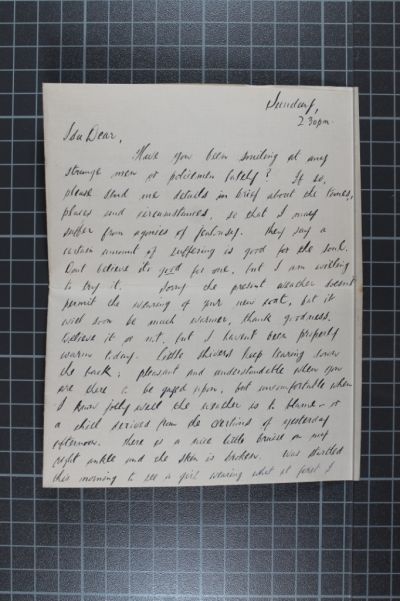 Sunday,
2.30pm.
Ida Dear,
Have you been smiling at any
strange men or policemen lately? If so,
please send me details in brief about the times,
places and circumstances, so that I may
suffer from agonies of jealousy. They say a
certain amount of suffering is good for the soul.
Dont believe its good for one, but I am willing
to try it. Sorry the present weather doesn't
permit the wearing of your new coat, but it
will soon be much warmer, thank goodness.
Believe it or not, but I haven't been properly
warm today. Little shivers keep tearing down
the back; pleasant and understandable when you
are there to be gazed upon, but uncomfortable when
I know jolly well the weather is to blame - or
a chill derived from the exertions of yesterday
afternoon. There is a nice little bruise on my
right ankle and the skin is broken. Was startled
this morning to see a girl wearing what at first I